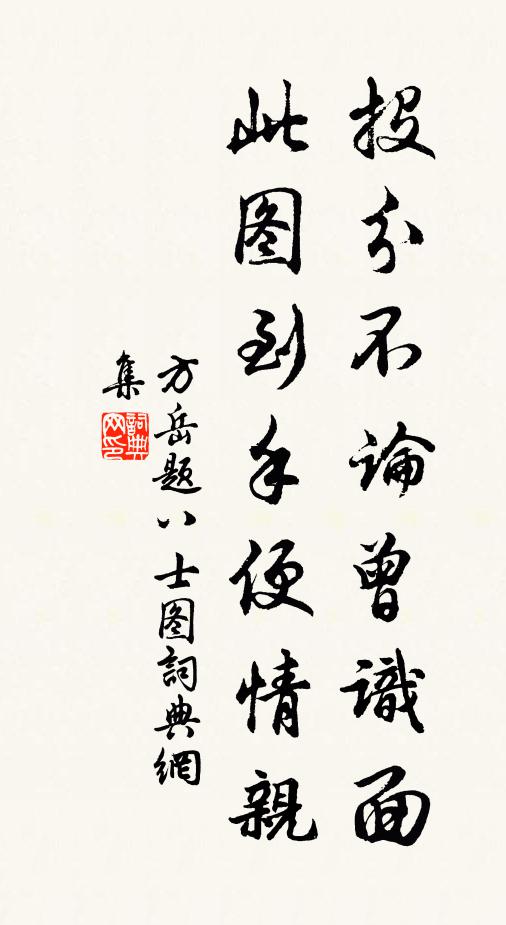 投分不論曾識面
此图到手便情親
方岳题八士图詞典網
集
詞典网印